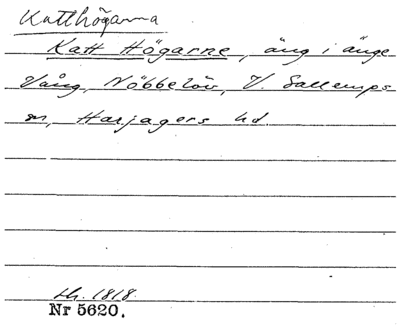 Katthögarna
Katt Högarne, äng i änge
Vång, Nöbbelöv, V. Sallerups
sn, Harjagers hd.
1818.
Nr 5620.